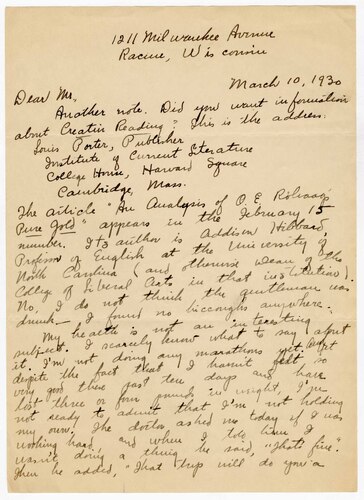 1211 Milwaukee Avenue
Racine, Wisconsin
March 10, 1930
Dear Mr.,
Another note. Did you want information
about Creative Reading" This is the address:
Louis Porter, Publisher
Institute of Current Literature
College House, Harvard Square
Cambridge, Mass.
The article "An Analysis of O. E. Rölvaag's
Pure Gold" appears in the February 15
number. Its author is Addison Hibbard,
Professor of English at the University of
North Carolina (and otherwise Dean of the
College of Liberal Arts in that institution).
No, I do not think the gentleman was
drunk — I found no hiccoughs anywhere.
My health is not an interesting
subject. I scarcely know what to say about
it. I'm not doing any marathons yet but
despite the fact that I haven't felt so
very good these past ten days and have
lost three or four pounds in weight, I'm
not ready to admit that I'm not holding
my own. The doctor asked me today if I was
working hard, and when I told him I
wasn't doing a thing he said, "That's fine".
Then he added, "That trip will do you a